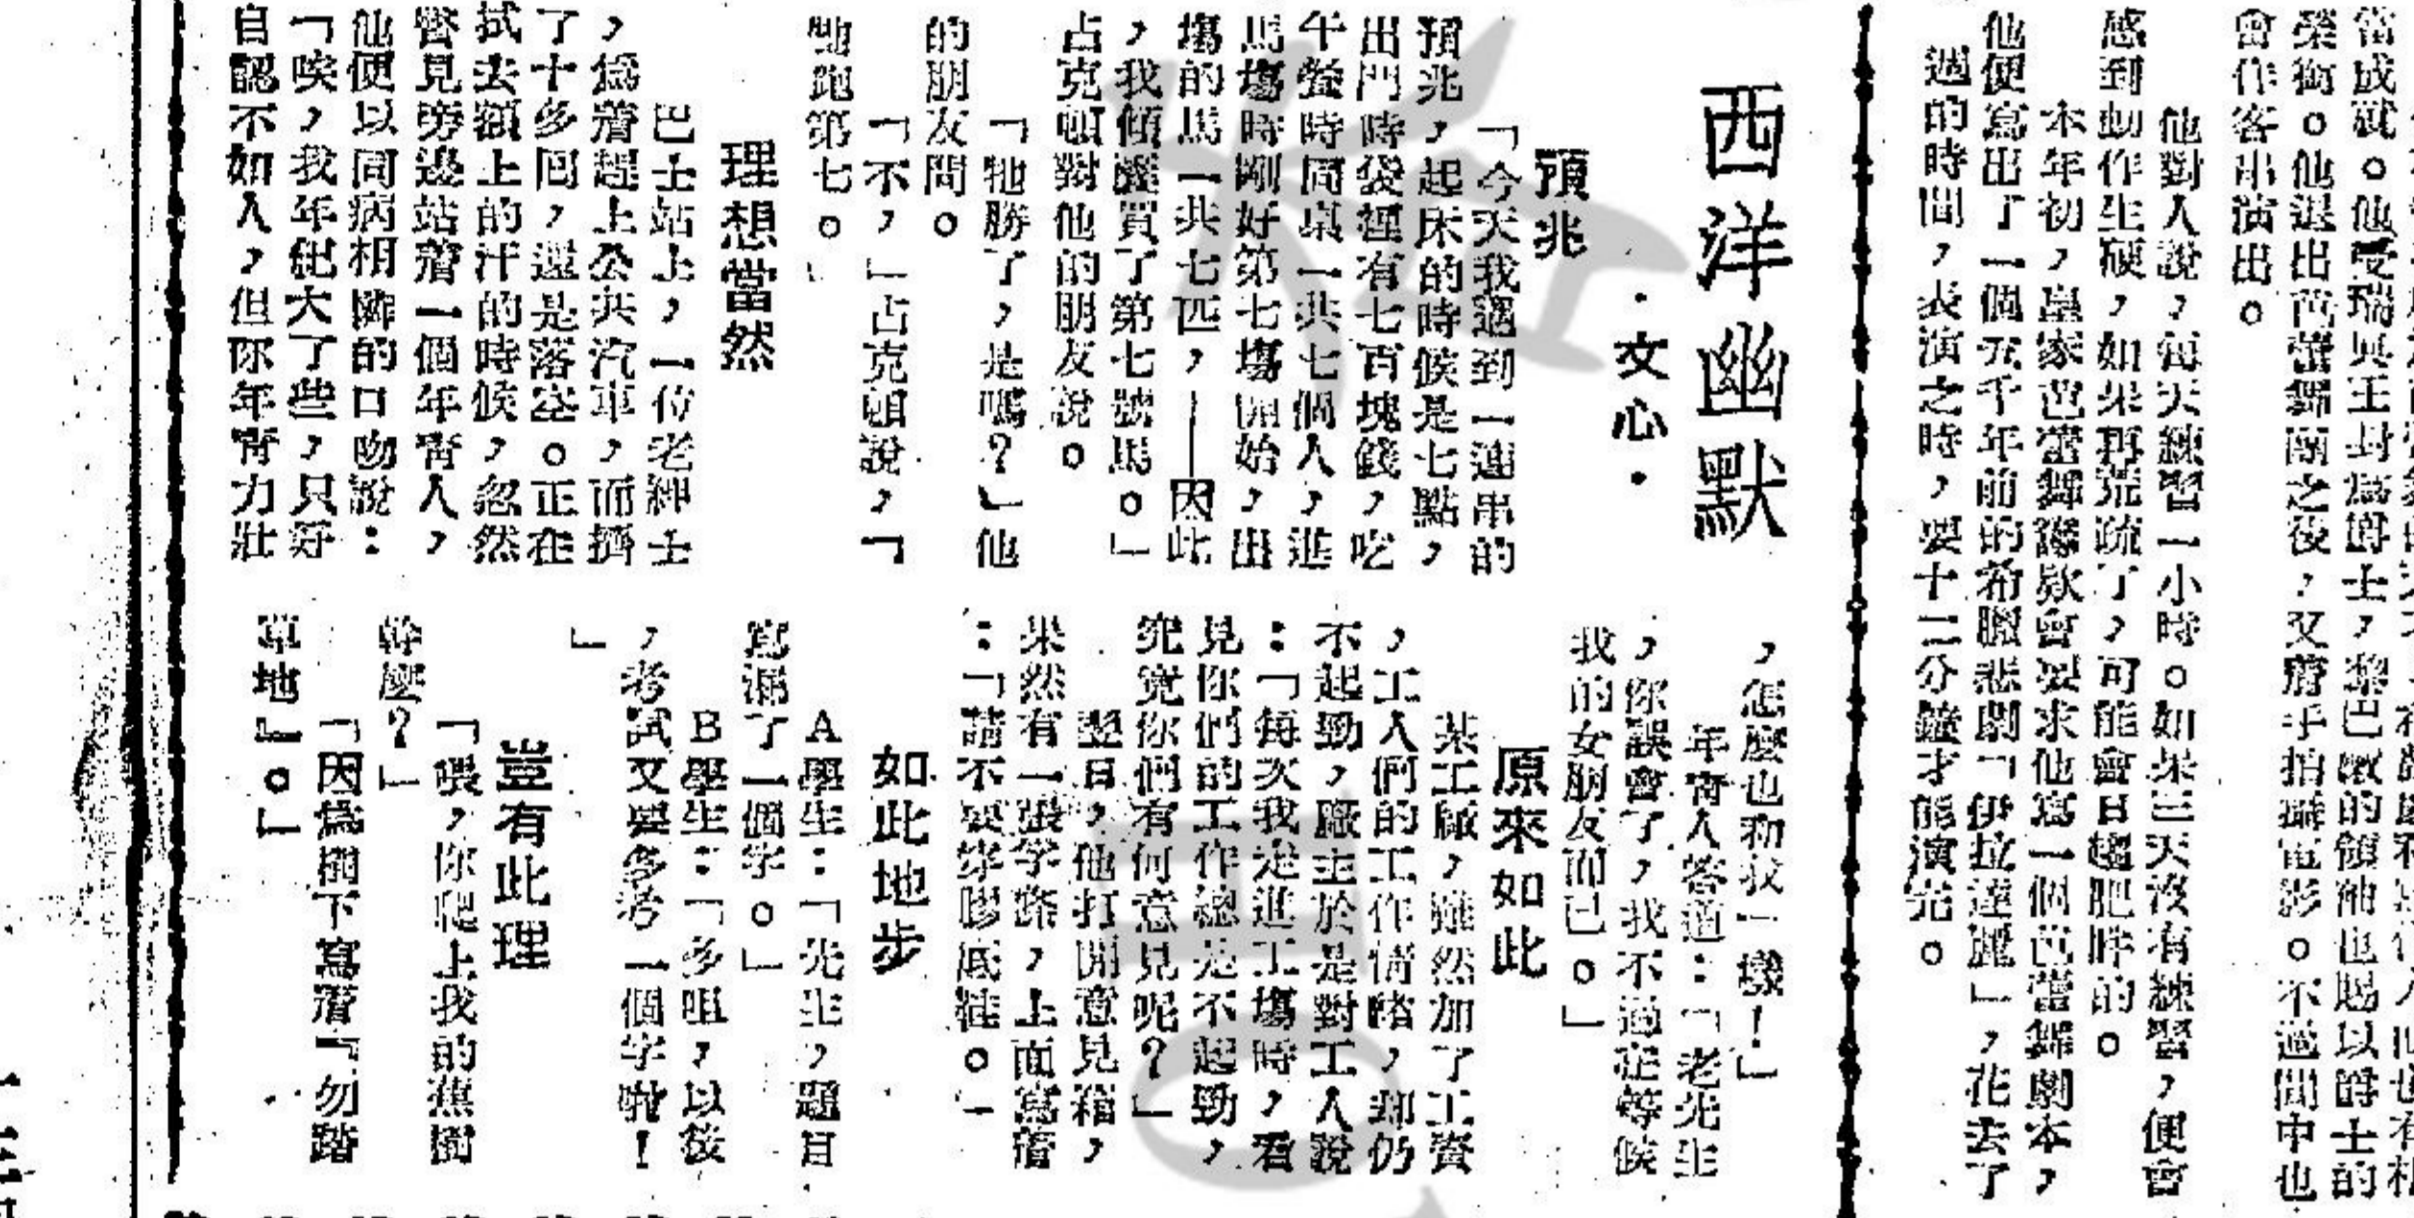 榮銜。他退出芭蕾舞團之後，又著手拍攝電影。不過間中也
會作客串演出。
他對人說，每天練習一小時。如果三天沒有練習，便會
感到動作生硬，如果再荒疏了，可能會日趨肥胖的。
本年初，皇家芭蕾舞譔欵會要求他寫一個芭蕾舞劇本，
他便寫出了一個五千年前的希臘悲劇「伊拉達麗」，花去了
週的時間，表演之時，要十二分鐘才能演完。
西洋幽默
·文心·
預兆
「今天我遇到一連串的
預兆，起床的時候是七點，
出門時袋裡有七百塊錢，吃
午餐時同桌一共七個人，進
馬塲時剛好第七塲開始，出
塲的馬一共七匹，——因此
，我傾囊買了第七號馬。」
占克頓對他的朋友說。
「牠勝了，是嗎？」他
的朋友問。
「不，」占克頓說，「
牠跑第七。」
理想當然
巴士站上，一位老紳士
，為着趕上公共汽車，而擠
了十多回，還是落空。正在
拭去額上的汗的時候，忽然
瞥見旁邊站着一個年青人，
他便以同病相憐的口吻說：
「唉，我年紀大了些，只好
自認不如人，但你年青力壯
，怎麼也和我一樣！」
年青人答道：「老先生
，你誤會了，我不過在等候
我的女朋友而已。」
原來如此
某工廠，雖然加了工資
，工人們的工作情緒，却仍
不起勁，廠主於是對工人說
：「每次我走進工塲時，看
見你們的工作總是不起勁，
究竟你們有何意見呢？」
翌日，他打開意見箱，
果然有一張字條，上面寫着
：「請不要穿膠底鞋。」
如此地步
A學生：「先生，題目
寫漏了一個字。」
B學生：「多咀，以後
，考試又要多考一個字啦！
」
豈有此理
「喂，你爬上我的蕉樹
幹麼？」
「因為樹下寫着『勿踏
草地』。」